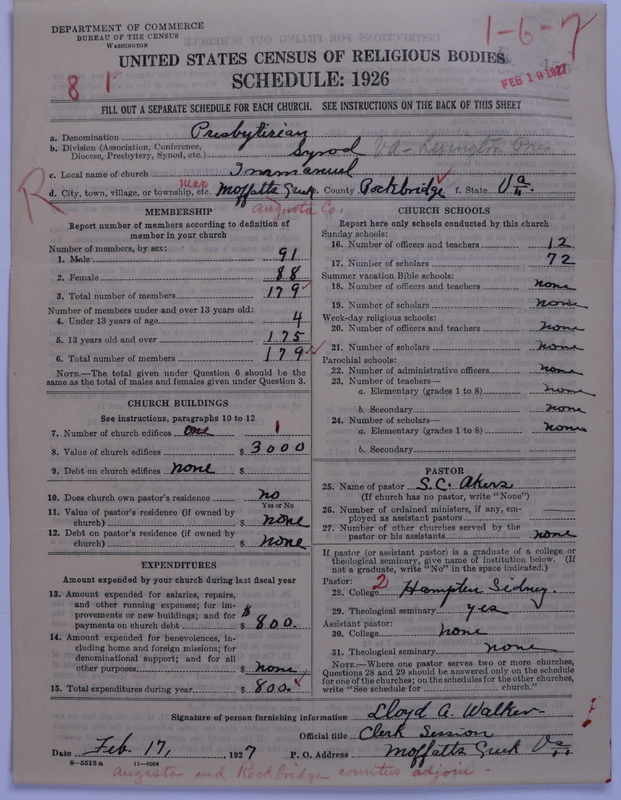 DEPARTMENT OF COMMERCE
BUREAU OF THE CENSUS
WASHINGTON
1-6-7
UNITED STATES CENSUS OF RELIGIOUS BODIES
SCHEDULE: 1926
8 1
FEB 19 1927
FILL OUT A SEPARATE SCHEDULE FOR EACH CHURCH. SEE INSTRUCTIONS ON THE BACK OF THIS SHEET
a. Denomination Presbytirian
b. Division (Association, Conference, Diocese, Presbytery, Synod, etc.) Synod Va - Lexington Pres
c. Local name of church Immanuel
R
d. City, town, village, or township, etc. near Moffatts Creek e. County Rockbridge f. State Va
Augusta Co.
MEMBERSHIP
Report number of members according to definition of
member in your church
Number of members, by sex:
1. Male 91
2. Female 88
3. Total number of members 179
Number of members under and over 13 years old:
4. Under 13 years of age 4
5. 13 years old and over 175
6. Total number of members 179
NOTE.—The total given under Question 6 should be the
same as the total of males and females given under Question 3.
CHURCH BUILDINGS
See instructions, paragraphs 10 to 12
7. Number of church edifices one 1
8. Value of church edifices $ 3000
9. Debt on church edifices none $
10. Does church own pastor's residence no
Yes or No
11. Value of pastor's residence (if owned by
church) $ none
12. Debt on pastor's residence (if owned by
church) $ none
EXPENDITURES
Amount expended by your church during last fiscal year
13. Amount expended for salaries, repairs,
and other running expenses; for im-
provements or new buildings; and for
payments on church debt $ 800.
14. Amount expended for benevolences, in-
cluding home and foreign missions; for
denominational support; and for all
other purposes $ none
15. Total expenditures during year $ 800.
CHURCH SCHOOLS
Report here only schools conducted by this church
Sunday schools:
16. Number of officers and teachers 12
17. Number of scholars 72
Summer vacation Bible schools:
18. Number of officers and teachers none
19. Number of scholars none
Week-day religious schools:
20. Number of officers and teachers none
21. Number of scholars none
Parochial schools:
22. Number of administrative officers none
23. Number of teachers—
a. Elementary (grades 1 to 8) none
b. Secondary none
24. Number of scholars—
a. Elementary (grades 1 to 8) none
b. Secondary
PASTOR
25. Name of pastor S. C. Akers
(If church has no pastor, write "None")
26. Number of ordained ministers, if any, em-
ployed as assistant pastors
27. Number of other churches served by the
pastor or his assistants none
If pastor (or assistant pastor) is a graduate of a college or
theological seminary, give name of institution below. (If
not a graduate, write "No" in the space indicated.)
Pastor:
28. College 2 Hampten Sidney.
29. Theological seminary yes
Assistant pastor:
30. College none
31. Theological seminary none
NOTE.—Where one pastor serves two or more churches,
Questions 28 and 29 should be answered only on the schedule
for one of the churches; on the schedules for the other churches,
write "See schedule for church."
Signature of person furnishing information Lloyd A. Walker
Official title Clerk Session
Date Feb. 17, 1927 P. O. Address Moffatts Creek Va
8-5513a 11-9064
Augusta and Rockbridge counties adjoin.